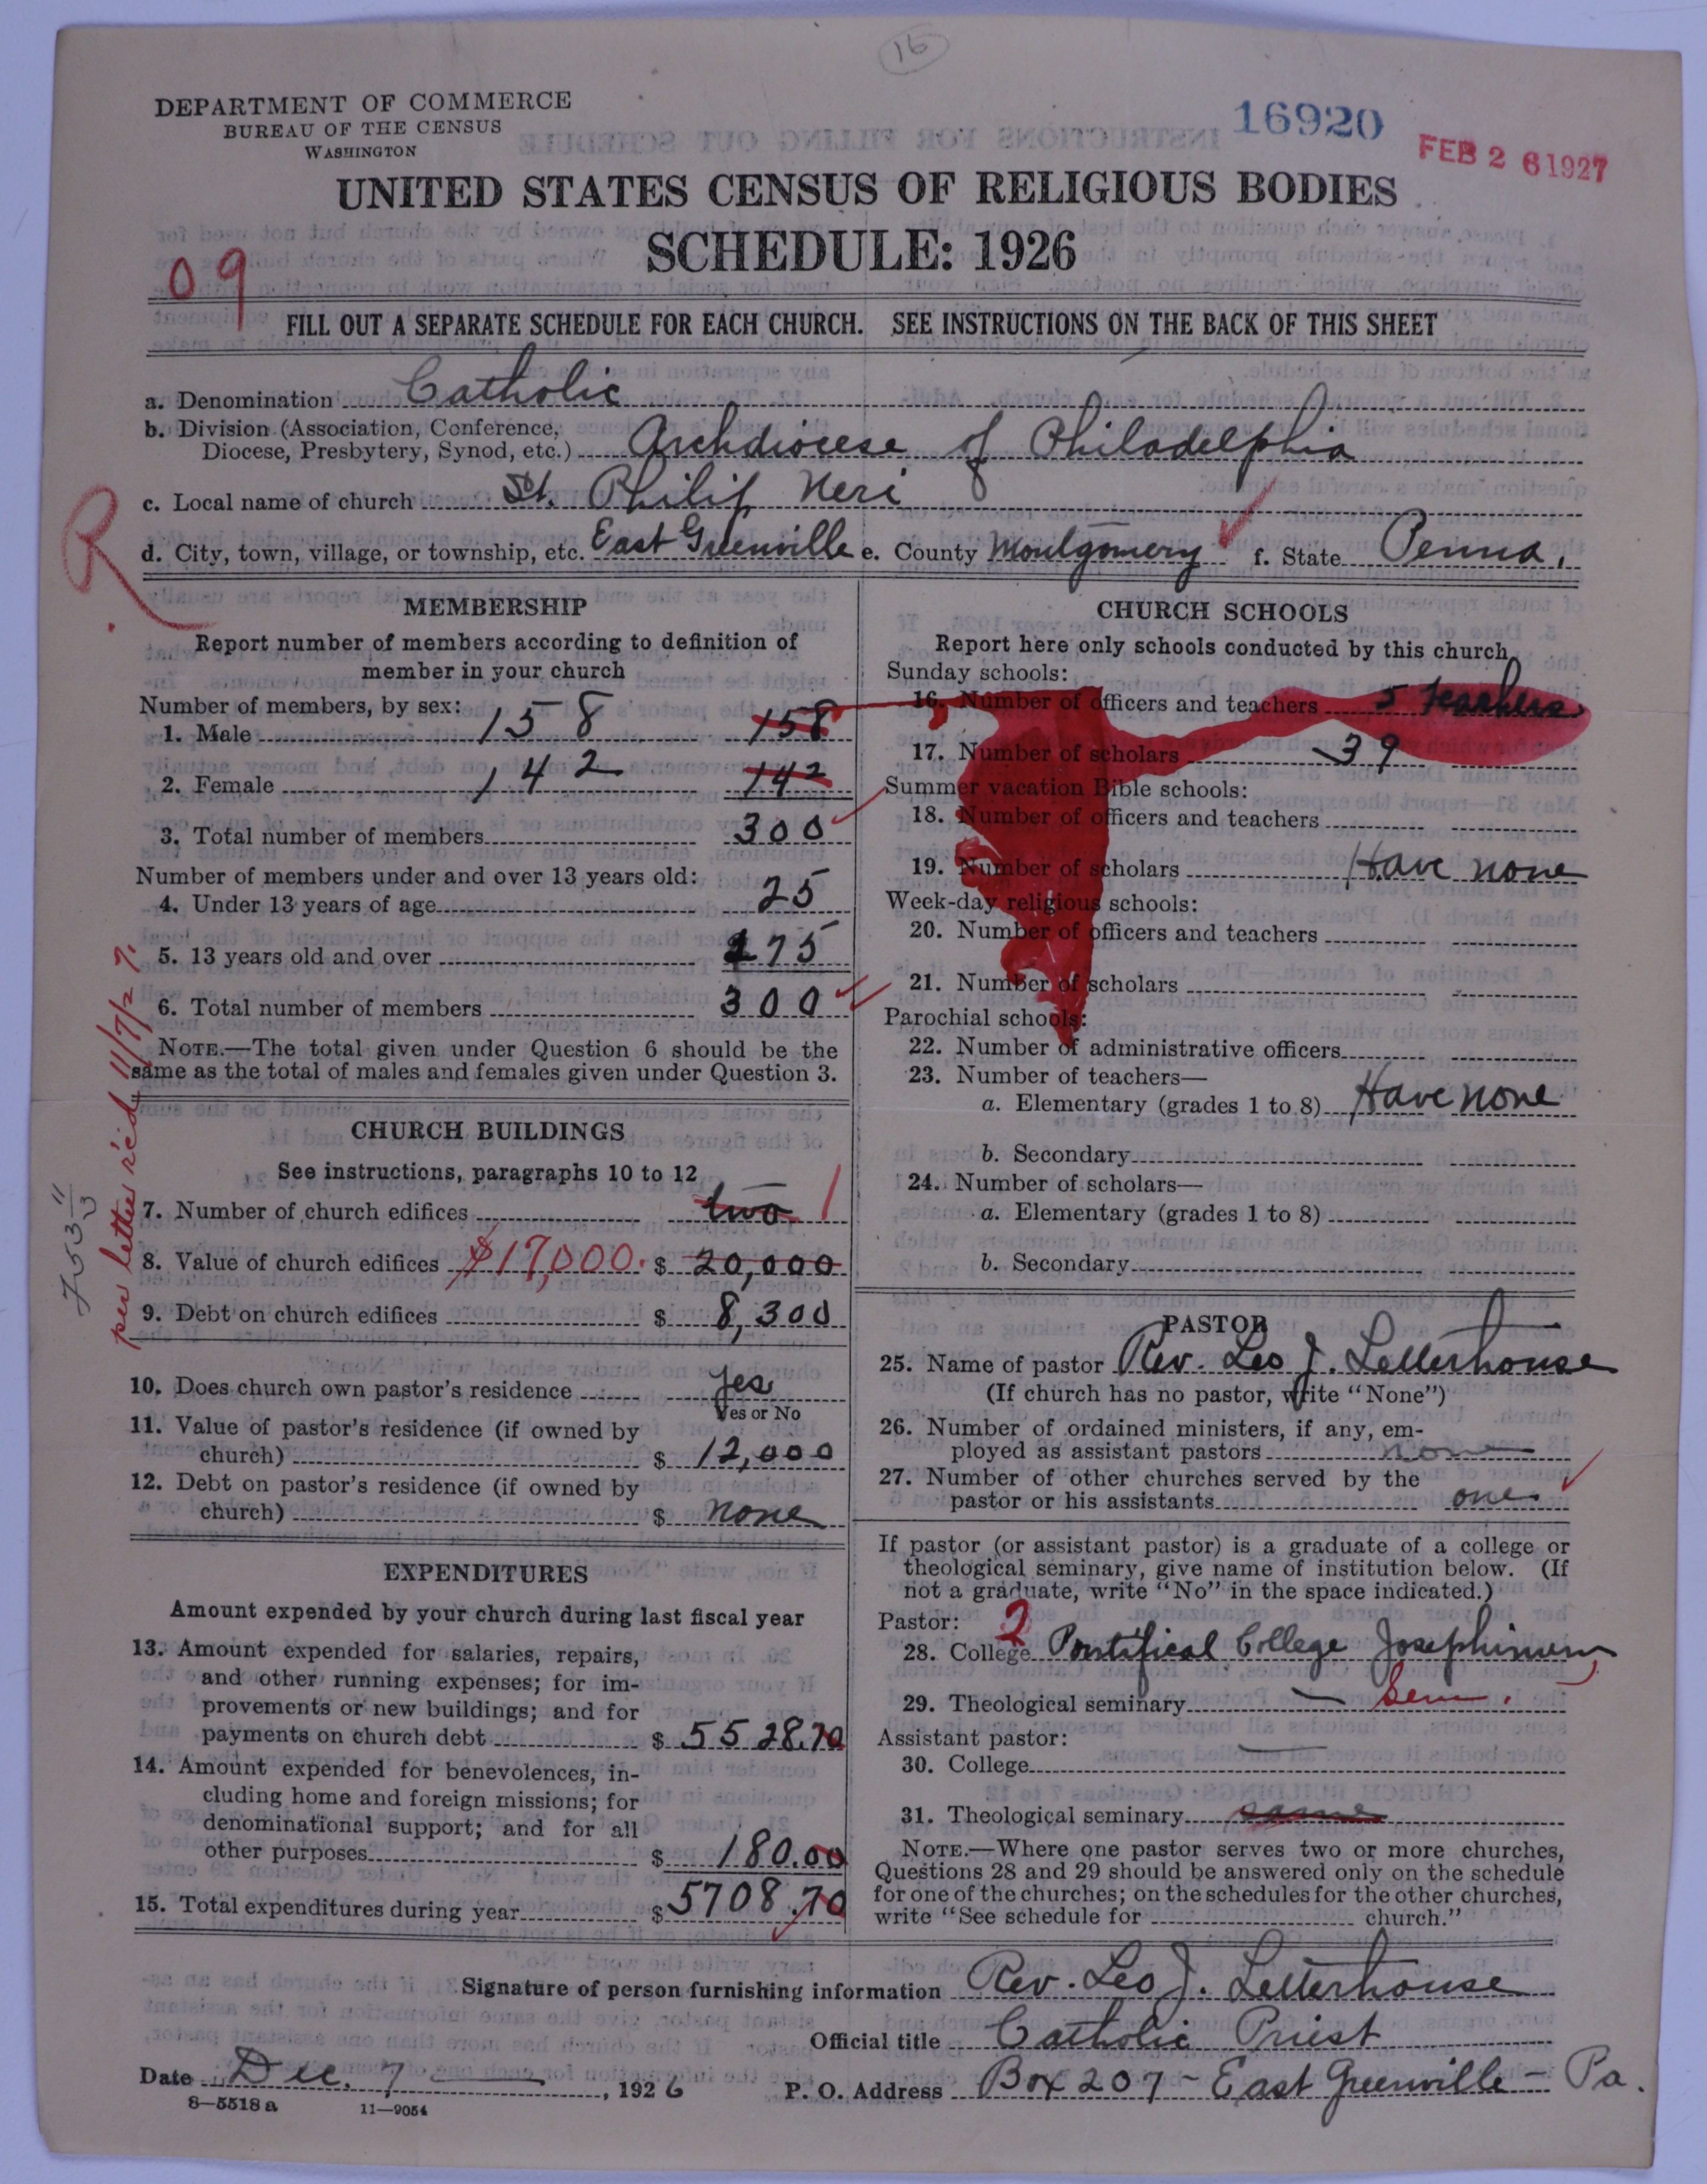 16
DEPARTMENT OF COMMERCE
BUREAU OF THE CENSUS
WASHINGTON
16920
FEB 26 1927
UNITED STATES CENSUS OF RELIGIOUS BODIES
SCHEDULE: 1926
09
FILL OUT A SEPARATE SCHEDULE FOR EACH CHURCH. SEE INSTRUCTIONS ON THE BACK OF THIS SHEET
a. Denomination Catholic
b. Division (Association, Conference,
Diocese, Presbytery, Synod, etc.) Archdiocese of Philadelphia
c. Local name of church St. Philip Neri
R
d. City, town, village, or township, etc. East Greenville e. County Montgomery f. State Penna.
MEMBERSHIP
Report number of members according to definition of
member in your church
Number of members, by sex:
1. Male 158 158
2. Female 142 142
3. Total number of members 300
Number of members under and over 13 years old:
4. Under 13 years of age 25
5. 13 years old and over 275
6. Total number of members 300
NOTE.—The total given under Question 6 should be the
same as the total of males and females given under Question 3.
per letter rec'd 11/7/27.
CHURCH BUILDINGS
See instructions, paragraphs 10 to 12
7. Number of church edifices two 1
8. Value of church edifices $17,000. $ 20,000
9. Debt on church edifices $ 8,300
10. Does church own pastor's residence yes
Yes or No
11. Value of pastor's residence (if owned by
church) $ 12,000
12. Debt on pastor's residence (if owned by
church) $ none
EXPENDITURES
Amount expended by your church during last fiscal year
13. Amount expended for salaries, repairs,
and other running expenses; for im-
provements or new buildings; and for
payments on church debt $ 5528.70
14. Amount expended for benevolences, in-
cluding home and foreign missions; for
denominational support; and for all
other purposes $ 180.00
15. Total expenditures during year $ 5708.70
CHURCH SCHOOLS
Report here only schools conducted by this church
Sunday schools:
16. Number of officers and teachers 5 teachers
17. Number of scholars 39
Summer vacation Bible schools:
18. Number of officers and teachers
19. Number of scholars Have none
Week-day religious schools:
20. Number of officers and teachers
21. Number of scholars
Parochial schools:
22. Number of administrative officers
23. Number of teachers—
a. Elementary (grades 1 to 8) Have none
b. Secondary
24. Number of scholars—
a. Elementary (grades 1 to 8)
b. Secondary
PASTOR
25. Name of pastor Rev. Leo J. Letterhouse
(If church has no pastor, write "None")
26. Number of ordained ministers, if any, em-
ployed as assistant pastors none
27. Number of other churches served by the
pastor or his assistants one
If pastor (or assistant pastor) is a graduate of a college or
theological seminary, give name of institution below. (If
not a graduate, write "No" in the space indicated.)
Pastor: 2
28. College Pontifical College Josephinum
29. Theological seminary — Sem.
Assistant pastor:
30. College —
31. Theological seminary same
NOTE.—Where one pastor serves two or more churches,
Questions 28 and 29 should be answered only on the schedule
for one of the churches; on the schedules for the other churches,
write "See schedule for church."
Signature of person furnishing information Rev. Leo J. Letterhouse
Official title Catholic Priest
Date Dec. 7, 1926 P. O. Address Box 207 - East Greenville - Pa.
8—5518a 11—9054